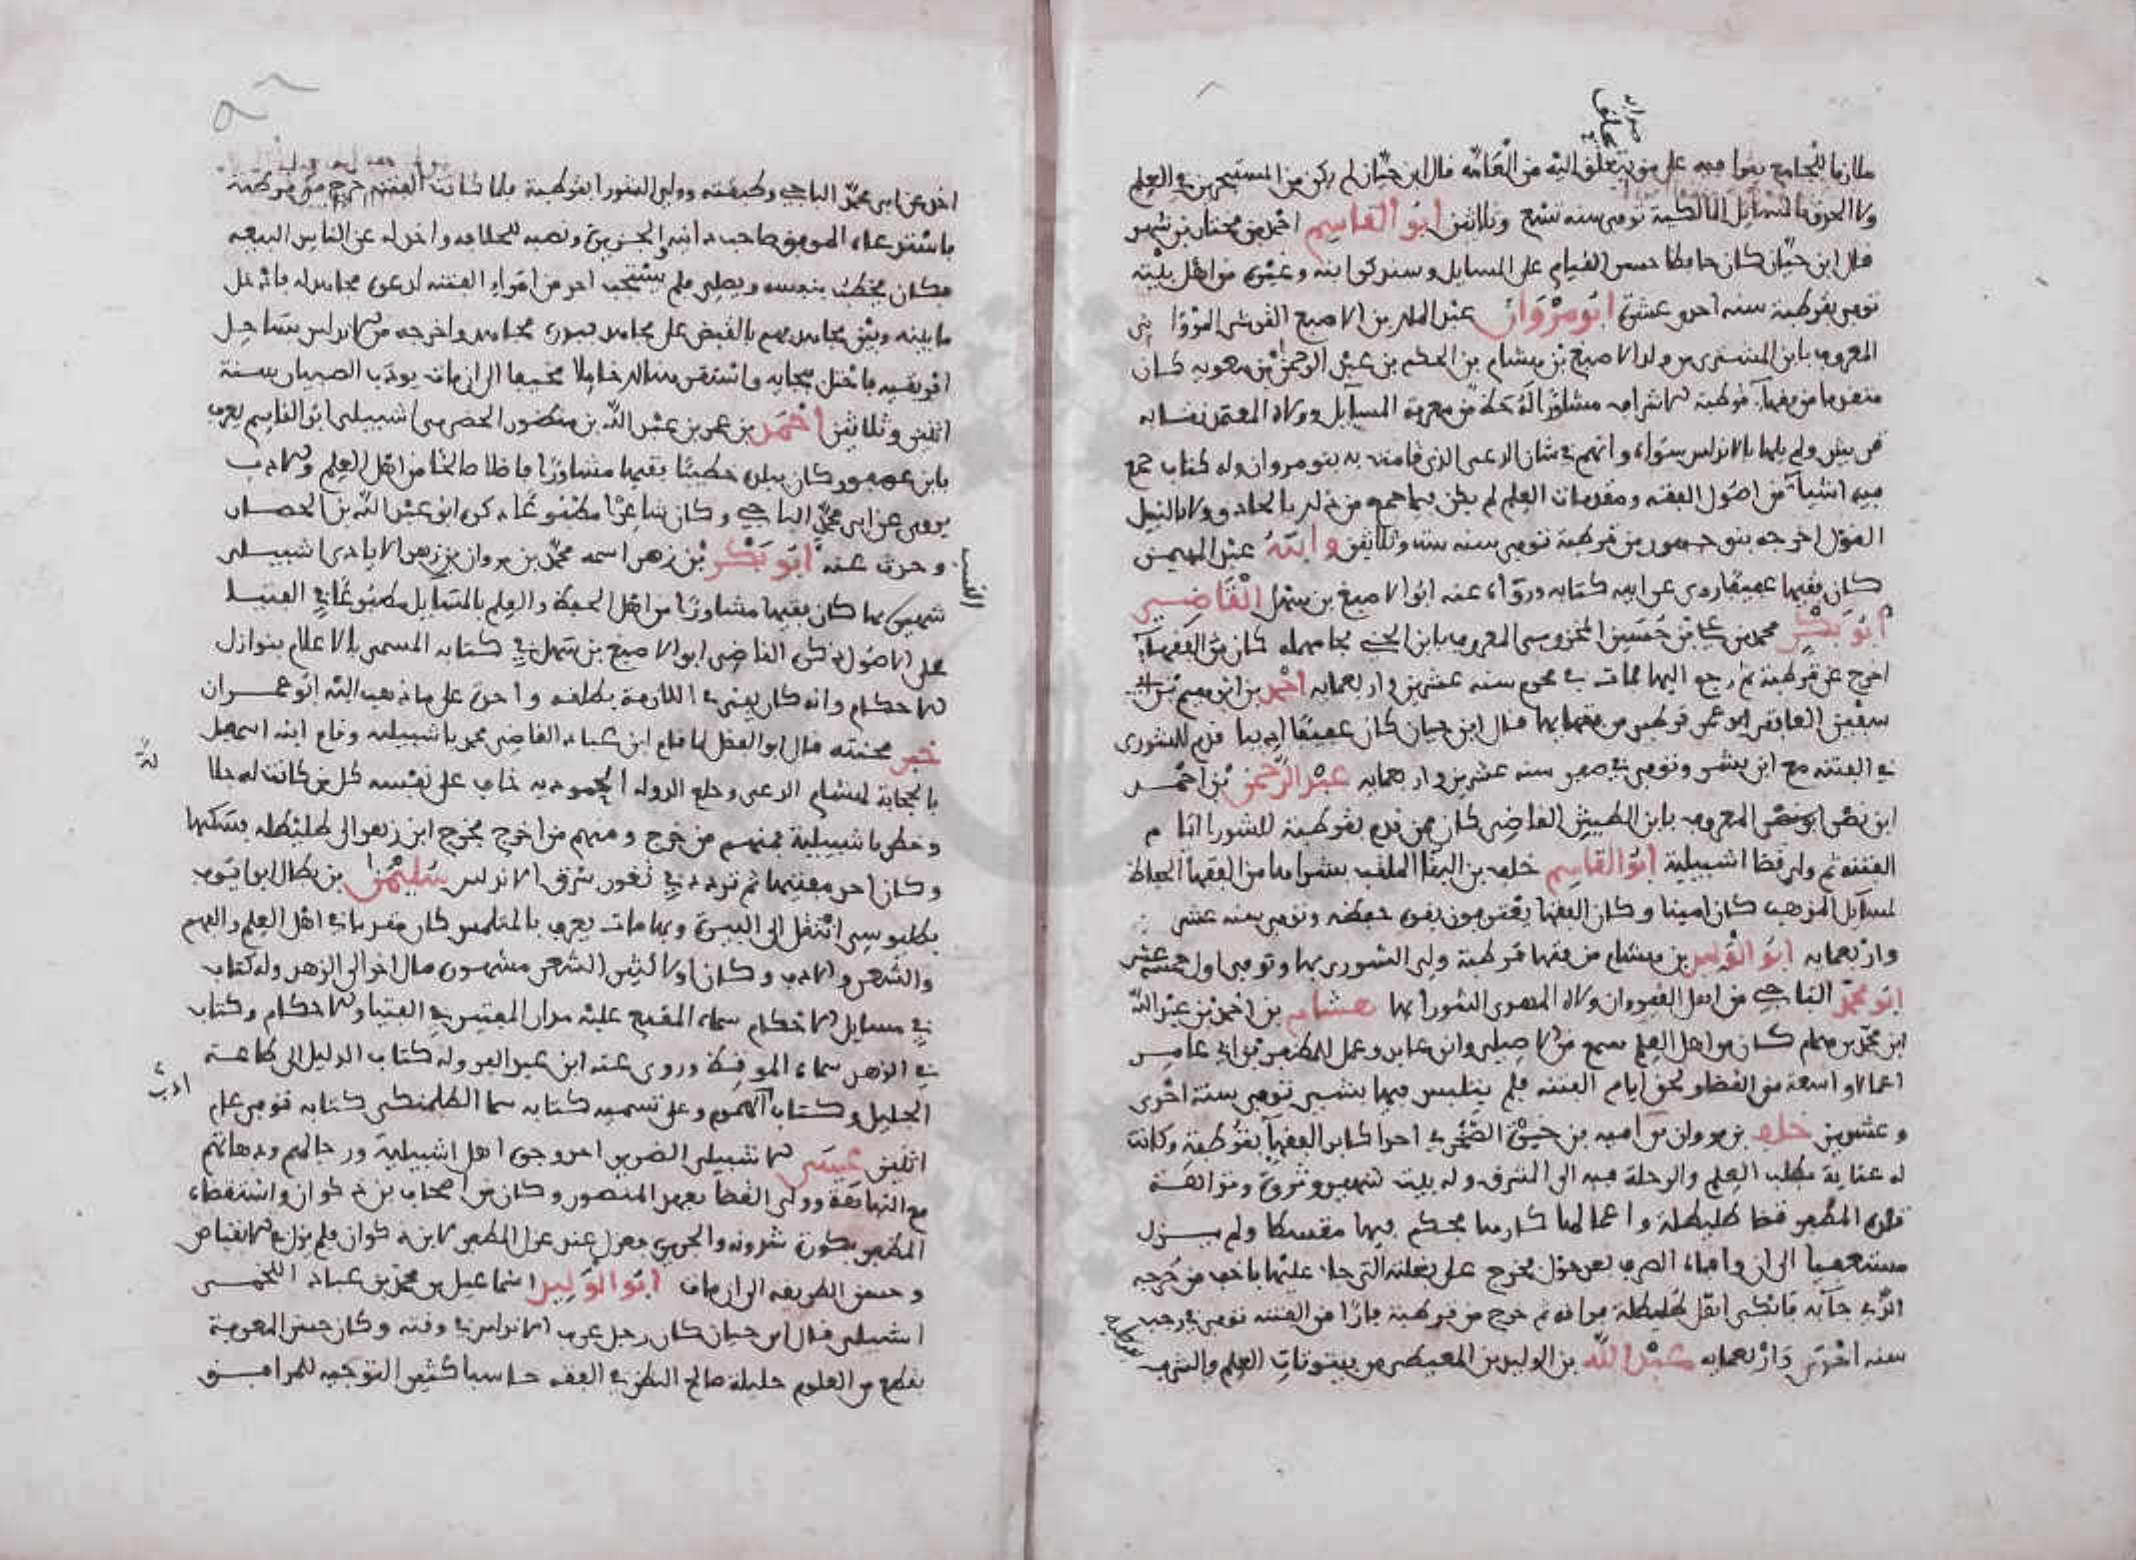 ملازما للجامع يقرا فيه على من يتعلق اليه من العامه قال ابن حيان لم يكن من المستبحرين في العلم
ولا الحذق بالمسايل المالكية توفي سنه تسع وثلاثين ابو القاسم احمد بن مختار بن شهر
قال ابن حيان كان حافظا حسن القيام على المسايل وسنذكر ابنه وغيره من اهل بيته
توفي بقرطبة سنه احدى عشرة ابو مروان عبد الملك بن الاصبغ القرشي المرواني
المعروف بابن المشتري من ولد الاصبغ بن هشام بن الحكم بن عبد الرحمن بن معوية كان
متقدما من فقهاء قرطبة مشاورا له حظ من معرفة المسايل وولاه المعتمد قضا
قريش ولم يلها بالاندلس سواه واتهم في شان الدعي الذي قامت به بنو مروان وله كتاب جمع
فيه اشياء من اصول الفقه ومقدمات العلم لم يكن فيما جمع من ذلك بالحاذق ولا بالنبيل
القول اخرجه بنو جهور من قرطبة توفي سنه ست وثلاثين وابنه عبد المهيمن
كان فقيها عفيفا روى عن ابيه كتابه ورواه عنه ابو الاصبغ بن سهل القاضي
ابو بكر محمد بن علي بن حسين المخزومي المعروف بابن الحني بحا مهمله كان من الفقهاء
اخرج عن قرطبة ثم رجع اليها فمات في محرم سنه عشرين واربعمايه احمد بن ابرهيم بن
سفين الغافقي ابو عمر قرطبي من فقهايها قال ابن حيان كان عفيفا اديبا قدم للشورى
في الفتنه مع ابن بشر وتوفي في صفر سنه عشرين واربعمايه عبد الرحمن بن احمد
ابن نصر ابو نصر المعروف بابن الطبيش القاضي كان ممن قدم بقرطبة للشورا ايام
الفتنه ثم ولي قضا اشبيلية ابو القاسم خلف بن البقا الملقب بشراما من الفقها الحفاظ
لمسايل المذهب كان امينا وكان الفقها يعترفون بقوة حفظه وتوفي سنه عشر
واربعمايه ابو الوليد بن هشام من فقها قرطبة ولي الشورى بها وتوفي اول خمسه عشر
ابو محمد الباجي من اهل القيروان ولاه المهدي الشورا بها هشام بن احمد بن عبد الله
ابن محمد بن هشام كان من اهل العلم سمع من الاصيلي وابن عابد وعمل للمظفر بن ابي عامر
اعمالا واسعة من القضا ولحق ايام الفتنه فلم يتلبس فيها بشي توفي سنة احدى
وعشرين خلف بن مروان بن اميه بن حيوة الصخري احد اكابر الفقهاء بقرطبة وكانت
له عناية بطلب العلم والرحلة فيه الى المشرق وله بيت شهير وثروة ومن الفقه
قلده المظفر قضا طليطلة واعمالها كارها يحكم فيها مقسطا ولم يزل
مستعفيا الى ان وافاه الصرف بعد حول فخرج على بغلته التي جا عليها باخف من خرجه
الذي جا به فابكى اهل طليطلة فراقه ثم خرج من قرطبة فارا من الفتنه توفي في رجب
سنه احدى واربعمايه عبد الله بن الوليد بن المعيطي من بيوتات العلم والشرف
اخذ عن ابي محمد الباجي وطبقته وولي الشورا بقرطبة فلما كانت الفتنة خرج من قرطبة
فاستقر عند الموفق صاحب دانيه والجزيرة ونصبه للخلافه واخذ له عن الناس البيعه
فكان يخطب بنفسه ويصلي فلم يستجب احد من امراء الفتنه لدعوة مجاهد له فانحل
ما بينه وبين مجاهد بهم بالقبض على مجاهد فبدره مجاهد واخرجه من الاندلس بساحل
افريقيه فاحتل بجايه واستقر هنالك خاملا مخيفا الى ان مات يودب الصبيان سنة
اثنين وثلاثين احمد بن عمر بن عبد الله بن منظور الحضرمي اشبيلي ابو القاسم يعرف
بابن عصفور كان ببلده خطيبا فقيها مشاورا فاضلا صالحا من اهل العلم والادب
يروي عن ابي محمد الباجي وكان شاعرا مطبوعا ذكره ابو عبد الله بن الحصار
وحدث عنه ابو بكر بن زهر اسمه محمد بن مروان بن زهر الايادي اشبيلي
شهير بها كان فقيها مشاورا من اهل الحفظ والعلم بالمسايل مطبوعا في الفتيا
على الاصول ذكره القاضي ابو الاصبغ بن سهل في كتابه المسمى بالاعلام بنوازل
الاحكام وانه كان يفتي في اللازمة بطلقه واحدة على ما ذهب اليه ابو عمران
خبر محنته قال ابو الفضل لما قام ابن عباد القاضي محمد باشبيلية وقام ابنه اسمعيل
بالحجابة لهشام الدعي وخلع الدولة الحمودية خاف على نفسه كل من كانت له حالا
وخطر باشبيلية فمنهم من خرج ومنهم من اخرج فخرج ابن زهر الى طليطلة فسكنها
وكان احد مفتيها ثم تردد في ثغور شرق الاندلس سليمن بن بطال ابو ايوب
بطليوسي انتقل الى البيرة وبها مات يعرف بالمتلمس كان مقدما في اهل العلم والفهم
والشعر والادب وكان اولا كثير الشعر مشهورا مال اخرا الى الزهد وله كتاب
في مسايل الاحكام سماه المقنع عليه مدار المفتين في الفتيا والاحكام وكتاب
في الزهد سماه الموقظ وروى عنه ابن عبد البر وله كتاب الدليل الى طاعة
الجليل وكتاب الهموم وعلى تسميه كتابه سما الطلمنكي كتابه توفي عام
اثنين عيسى الاشبيلي الضرير احد وجوه اهل اشبيلية ورجالهم ودهاتهم
مع النباهة وولي القضا بعهد المنصور وكان من اصحاب بن ذكوان واستقضاه
المظفر بكورة شذونه والجزيرة وعزل عند عزل المظفر لابن ذكوان فلم يزل في الانقباض
وحسن الطريقه الى ان مات ابو الوليد اسماعيل بن محمد بن عباد اللخمي
اشبيلي قال ابن حيان كان رجل غرب الاندلس في وقته وكان حسن المعرفة
بقطع من العلوم جليلة صالح النظر في الفقه حاسبا كثير التوجيه للمرافق